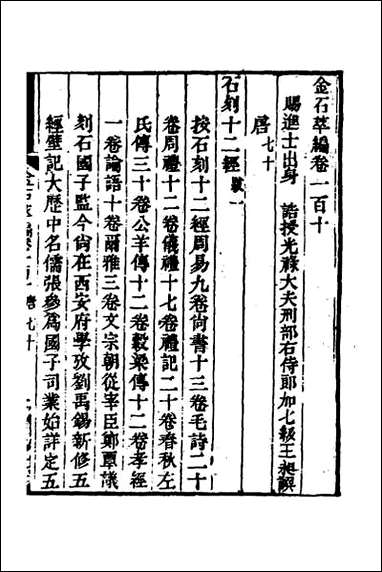 金石萃編卷一百十
賜進士出身 誥授光祿大夫刑部右侍郎加七級王昶譔
唐七十
石刻十二經跋一
按石刻十二經周易九卷尙書十三卷毛詩二十
卷周禮十二卷儀禮十七卷禮記二十卷春秋左
氏傳三十卷公羊傳十二卷穀梁傳十二卷孝經
一卷論語十卷爾雅三卷文宗朝從宰臣鄭覃議
刻石國子監今尙在西安府學攷劉禹錫新修五
經壁記大歷中名儒張參爲國子司業始詳定五